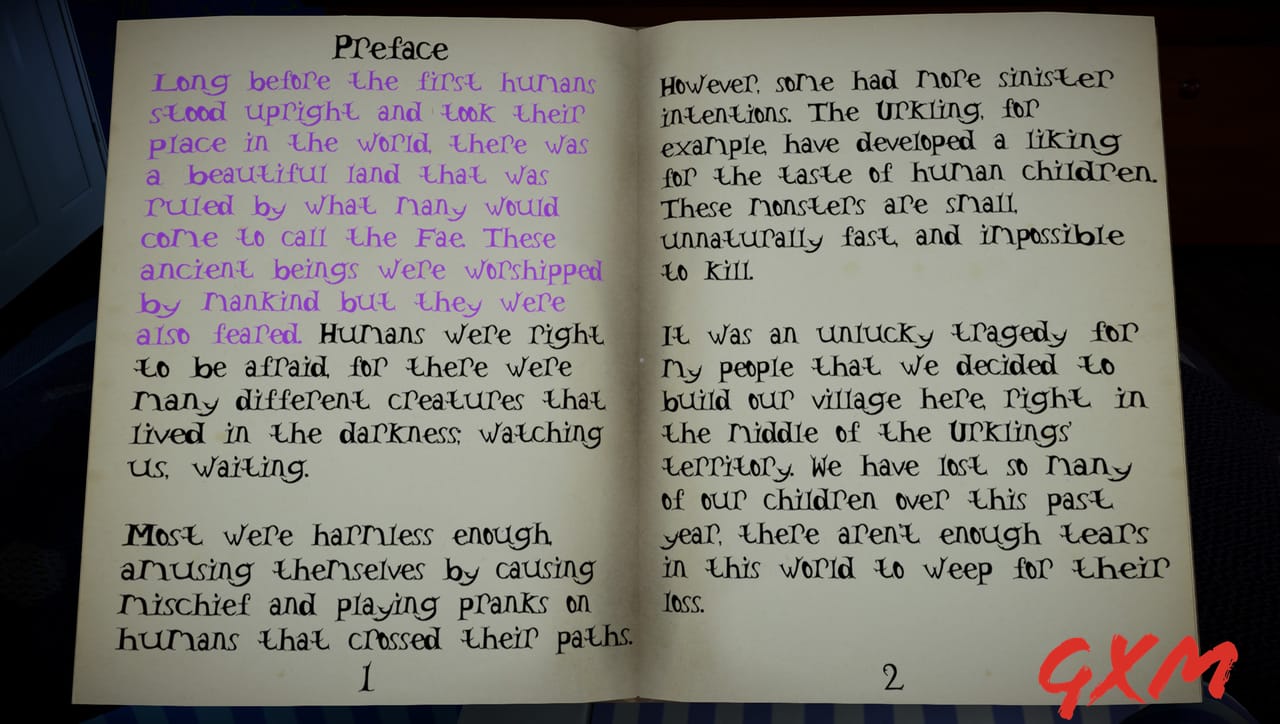 Preface
Long before the first humans
stood upright and took their
place in the world, there was
a beautiful land that was
ruled by what many would
come to call the Fae. These
ancient beings were worshipped
by mankind but they were
also feared. Humans were right
to be afraid, for there were
many different creatures that
lived in the darkness; watching
us, waiting.
Most were harmless enough,
amusing themselves by causing
mischief and playing pranks on
humans that crossed their paths.
1
However, some had more sinister
intentions. The Urkling, for
example, have developed a liking
for the taste of human children.
These monsters are small,
unnaturally fast, and impossible
to kill.
It was an unlucky tragedy for
my people that we decided to
build our village here, right in
the middle of the Urklings'
territory. We have lost so many
of our children over this past
year, there aren't enough tears
in this world to weep for their
loss.
2
GXM